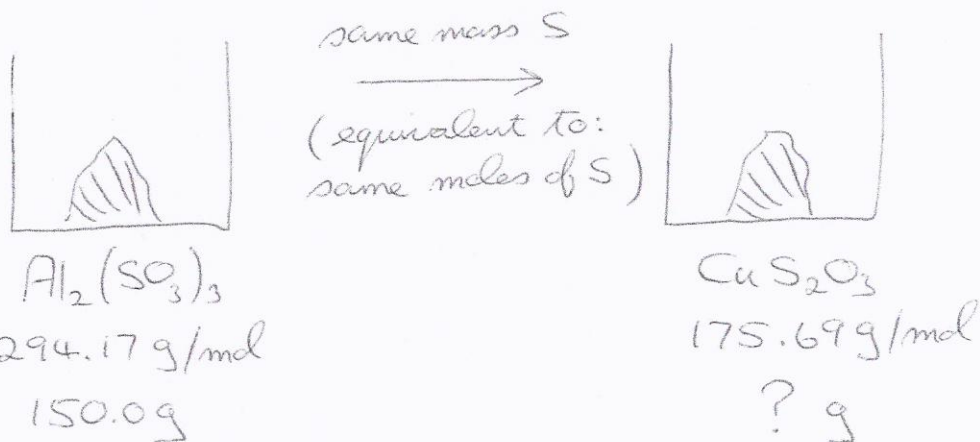 same mass S
(equivalent to:
same moles of S)
Al₂(SO₃)₃
294.17 g/mol
150.0g
CuS₂O₃
175.69 g/mol
? g